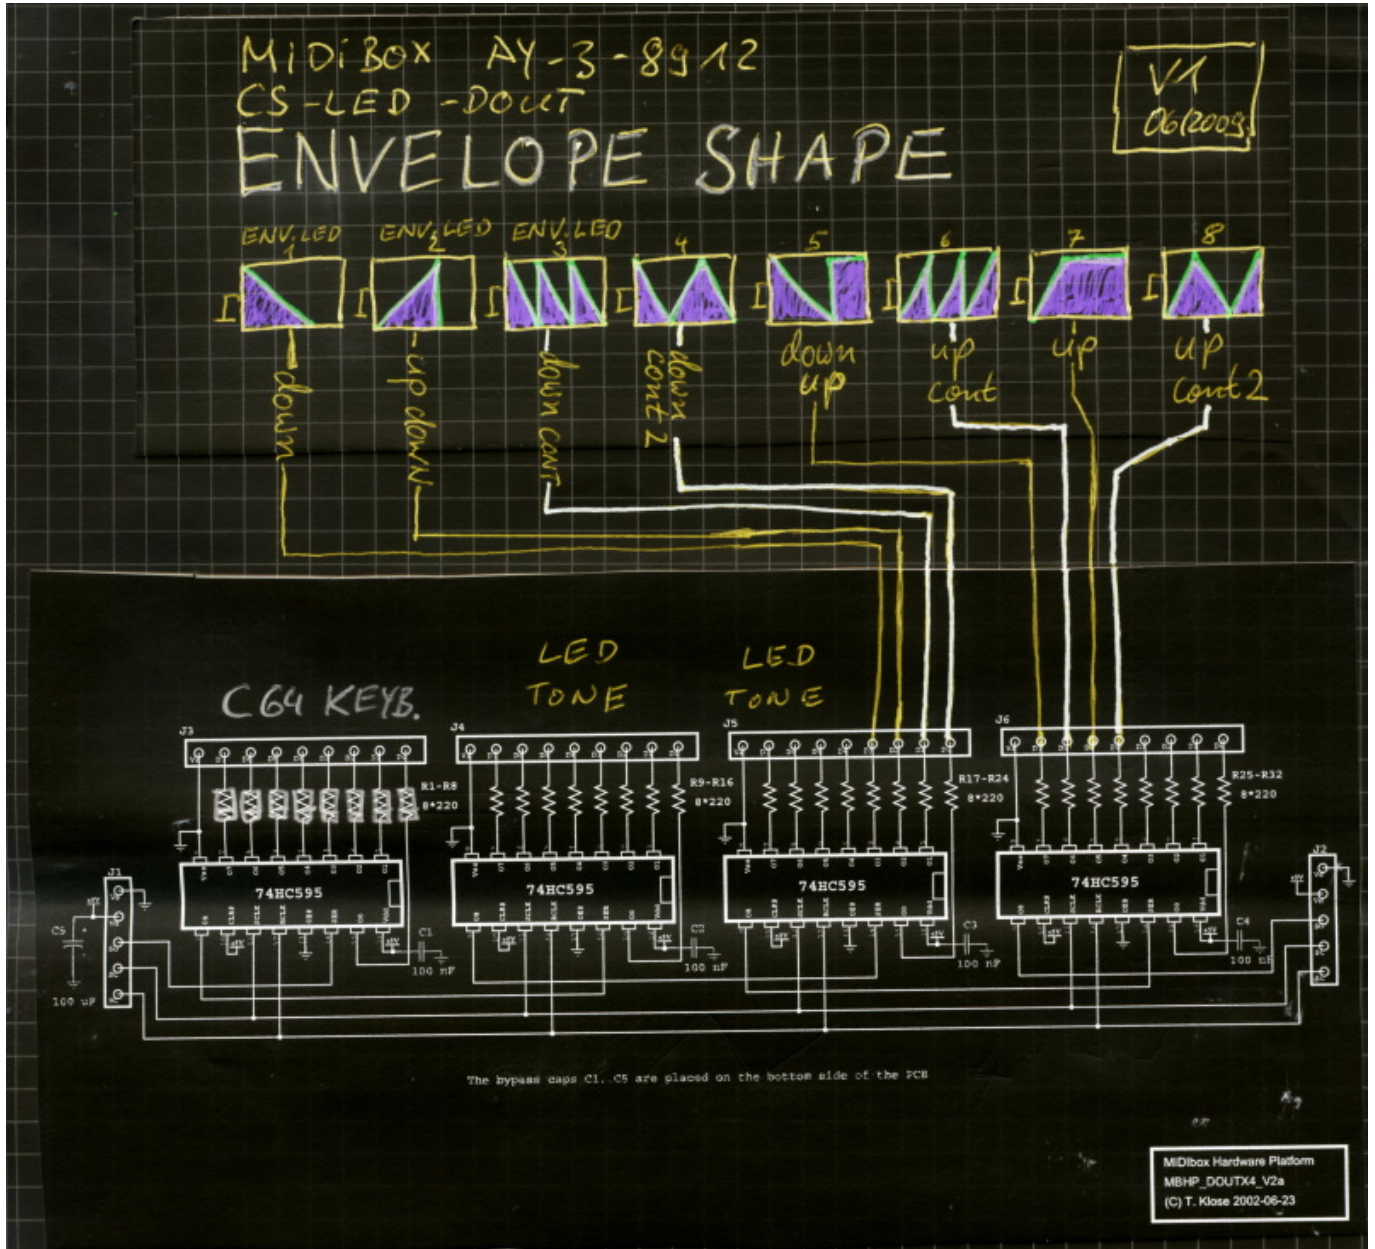 MIDIBOX AY-3-8912
CS-LED-DOUT
ENVELOPE SHAPE
V1
06/2009
ENV.LED 1
ENV.LED 2
ENV.LED 3
4
5
6
7
8
down
up down
down cont
down cont 2
down up
up cont
up
up cont 2
C64 KEYB.
LED TONE
LED TONE
J3
J4
J5
J6
R1-R8
8*220
R9-R16
8*220
R17-R24
8*220
R25-R32
8*220
J1
74HC595
74HC595
74HC595
74HC595
J2
C5
100 uF
C1
100 nF
100 nF
C3
100 nF
C4
100 nF
The bypass caps C1. C5 are placed on the bottom side of the PCB
MIDIbox Hardware Platform
MBHP_DOUTX4_V2a
(C) T. Klose 2002-06-23